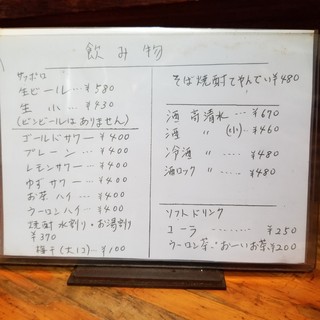 飲み物
サッポロ
生ビール…¥580
生 小 …¥430
(ビンビールはありません)
ゴールドサワー…¥400
プレーン 〃 …¥400
レモンサワー…¥400
ゆずサワー…¥400
お茶ハイ…¥400
ウーロンハイ…¥400
焼酎 水割り・お湯割り
¥370
梅干(大1コ)…¥100
そば焼酎 ¥480
酒 高清水…¥670
酒 〃 (小)…¥460
冷酒 〃 …¥480
酒ロック 〃 …¥480
ソフトドリンク
コーラ ……… ¥250
ウーロン茶・おーいお茶¥200